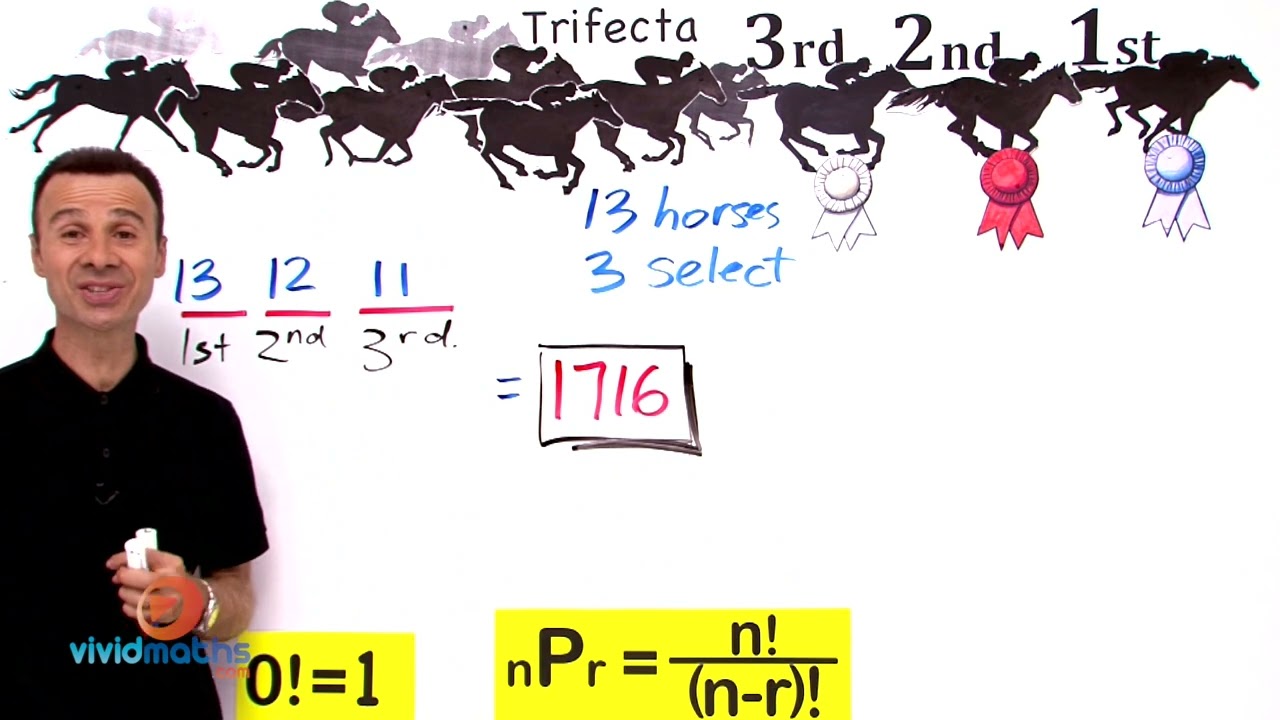 Trifecta
3rd 2nd 1st
13 horses
3 select
13 12 11
1st 2nd 3rd.
= 1716
vividmaths
.com
0!=1
nPr = n!/(n-r)!